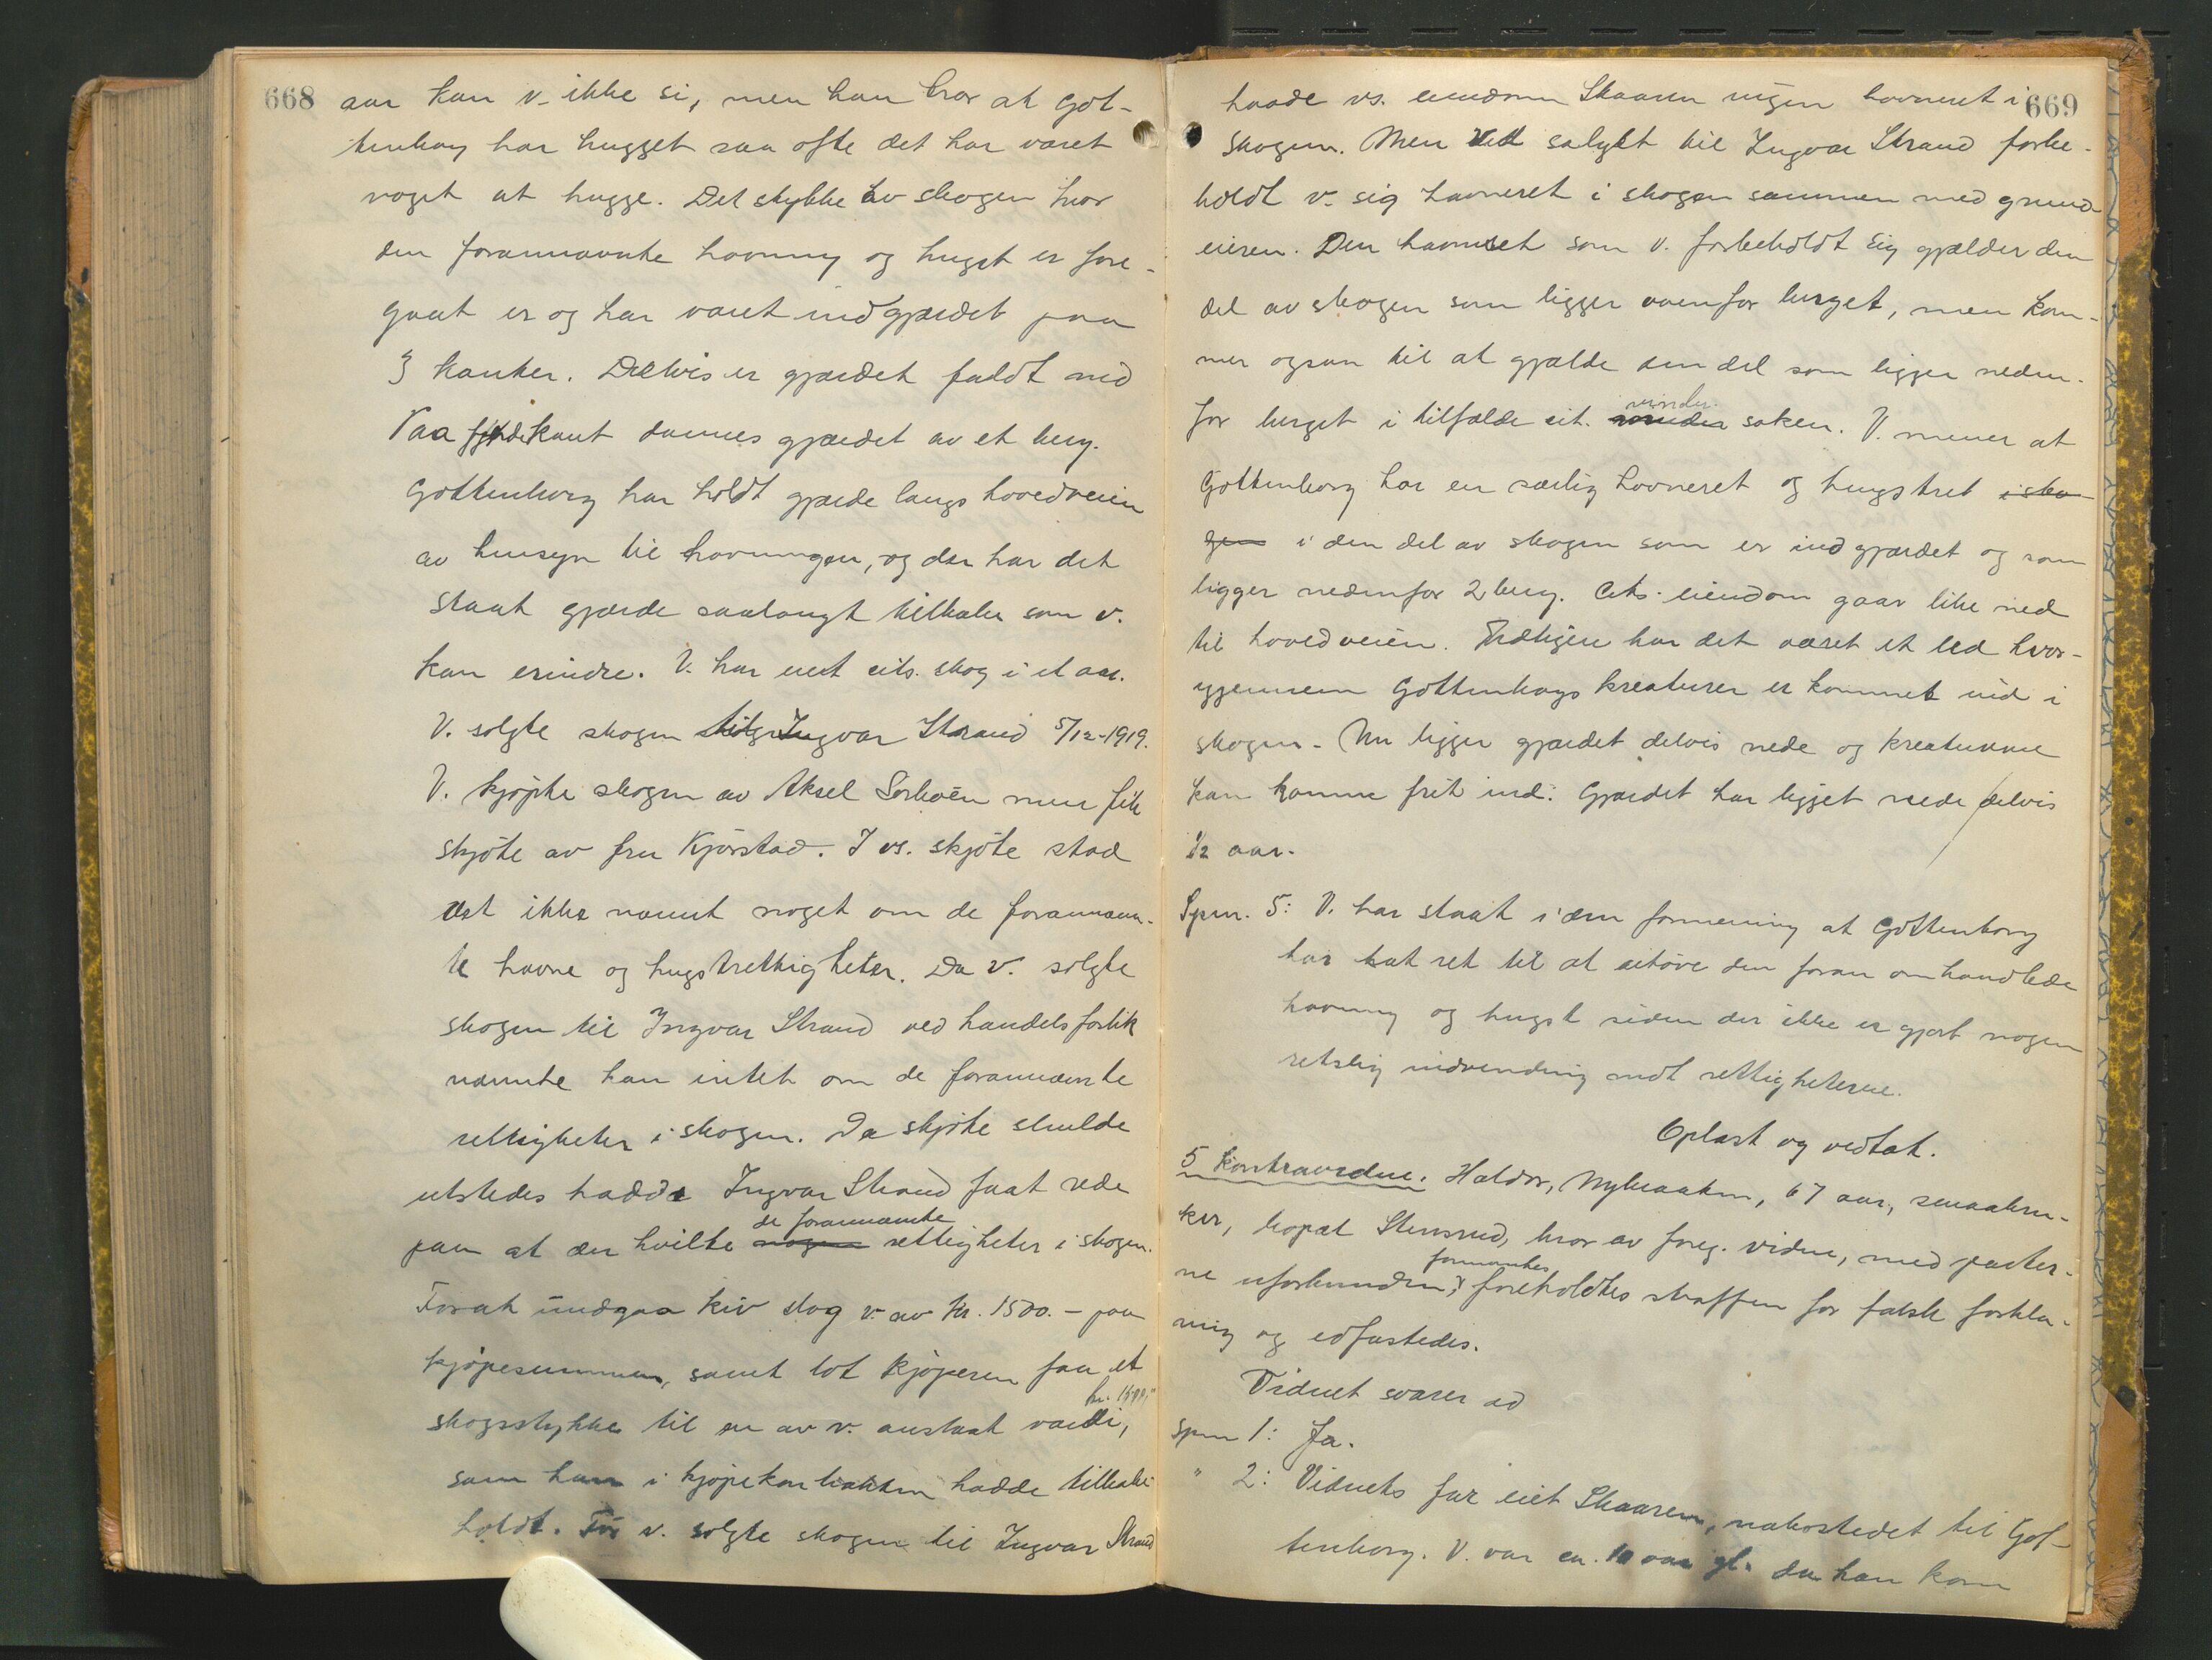 668
aar kan v. ikke si, men han tror at Got-
tenborg har hugget saa ofte det har været
noget at hugge. Det stykke av skogen hvor
den forannævnte havning og hugst er fore-
gaat er og har været indgjærdet paa
3 kanter. Delvis er gjærdet faldt ned
Paa fjerde kant dannes gjærdet av et berg.
Gottenborg har holdt gjærde langs hovedveien
av hensyn til havningen, og der har det
staat gjærde saalangt tilbake som v.
kan erindre. V. har eiet cits. skog i et aar.
V. solgte skogen til Ingvar Strand 5/12-1919.
V. kjøpte skogen av Aksel Sorboën men fik
skjöte av fru Kjörstad. I vs. skjöte stod
det ikke nævnt noget om de forannævn-
te havne og hugstrettigheter. Da v. solgte
skogen til Ingvar Strand ved handelsforlik
nævnte han intet om de forannævnte
rettigheter i skogen. Da skjöte skulde
utstedes hadde Ingvar Strand faat rede
paa at der hvilte de forannævnte rettigheter i skogen.
For at undgaa kiv slog v. av kr. 1500.- paa
kjøpesummen, samt lot kjøperen faa et
skogsstykke til en av v. anslaat værdi, kr. 1500,-
som han i kjøpekontrakten hadde tilbake-
holdt. Før v. solgte skogen til Ingvar Strand
669
hadde vs. eiendom Skaaren ingen havneret i
skogen. Men ved salget til Ingvar Strand forbe-
holdt v. sig havneret i skogen sammen med grund-
eieren. Den havneret som v. forbeholdt sig gjælder den
del av skogen som ligger ovenfor berget, men kom-
mer ogsaa til at gjælde den del som ligger neden-
for berget i tilfælde cit. vinder saken. V. mener at
Gottenborg har en særlig havneret og hugstret i sko-
gen i den del av skogen som er indgjærdet og som
ligger nedenfor 2 berg. Cits. eiendom gaar like ned
til hovedveien. Tidligere har det været et led hvor-
igjennem Gottenborgs kreaturer er kommet ind i
skogen. Nu ligger gjærdet delvis nede og kreaturene
kan komme frit ind. Gjærdet har ligget nede delvis
1/2 aar.
Spm. 5: V. har staat i den formening at Gottenborg
har hat ret til at utöve den foran omhandlede
havning og hugst siden der ikke er gjort nogen
retslig indvending mot rettigheterne.
Oplæst og vedtat.
5 kontravidne. Haldor, Nybraaten, 67 aar, smaabru-
ker, bopæl Stensrud, bror av foreg. vidne, med parter-
ne uforbunden, formantes foreholdtes straffen for falsk forkla-
ring og edfæstedes.
Vidnet svarer ad
Spm 1: Ja.
" 2: Vidnets far eiet Skaaren, nabostedet til Got-
tenborg. V. var ca. 10 aar gl. da han kom